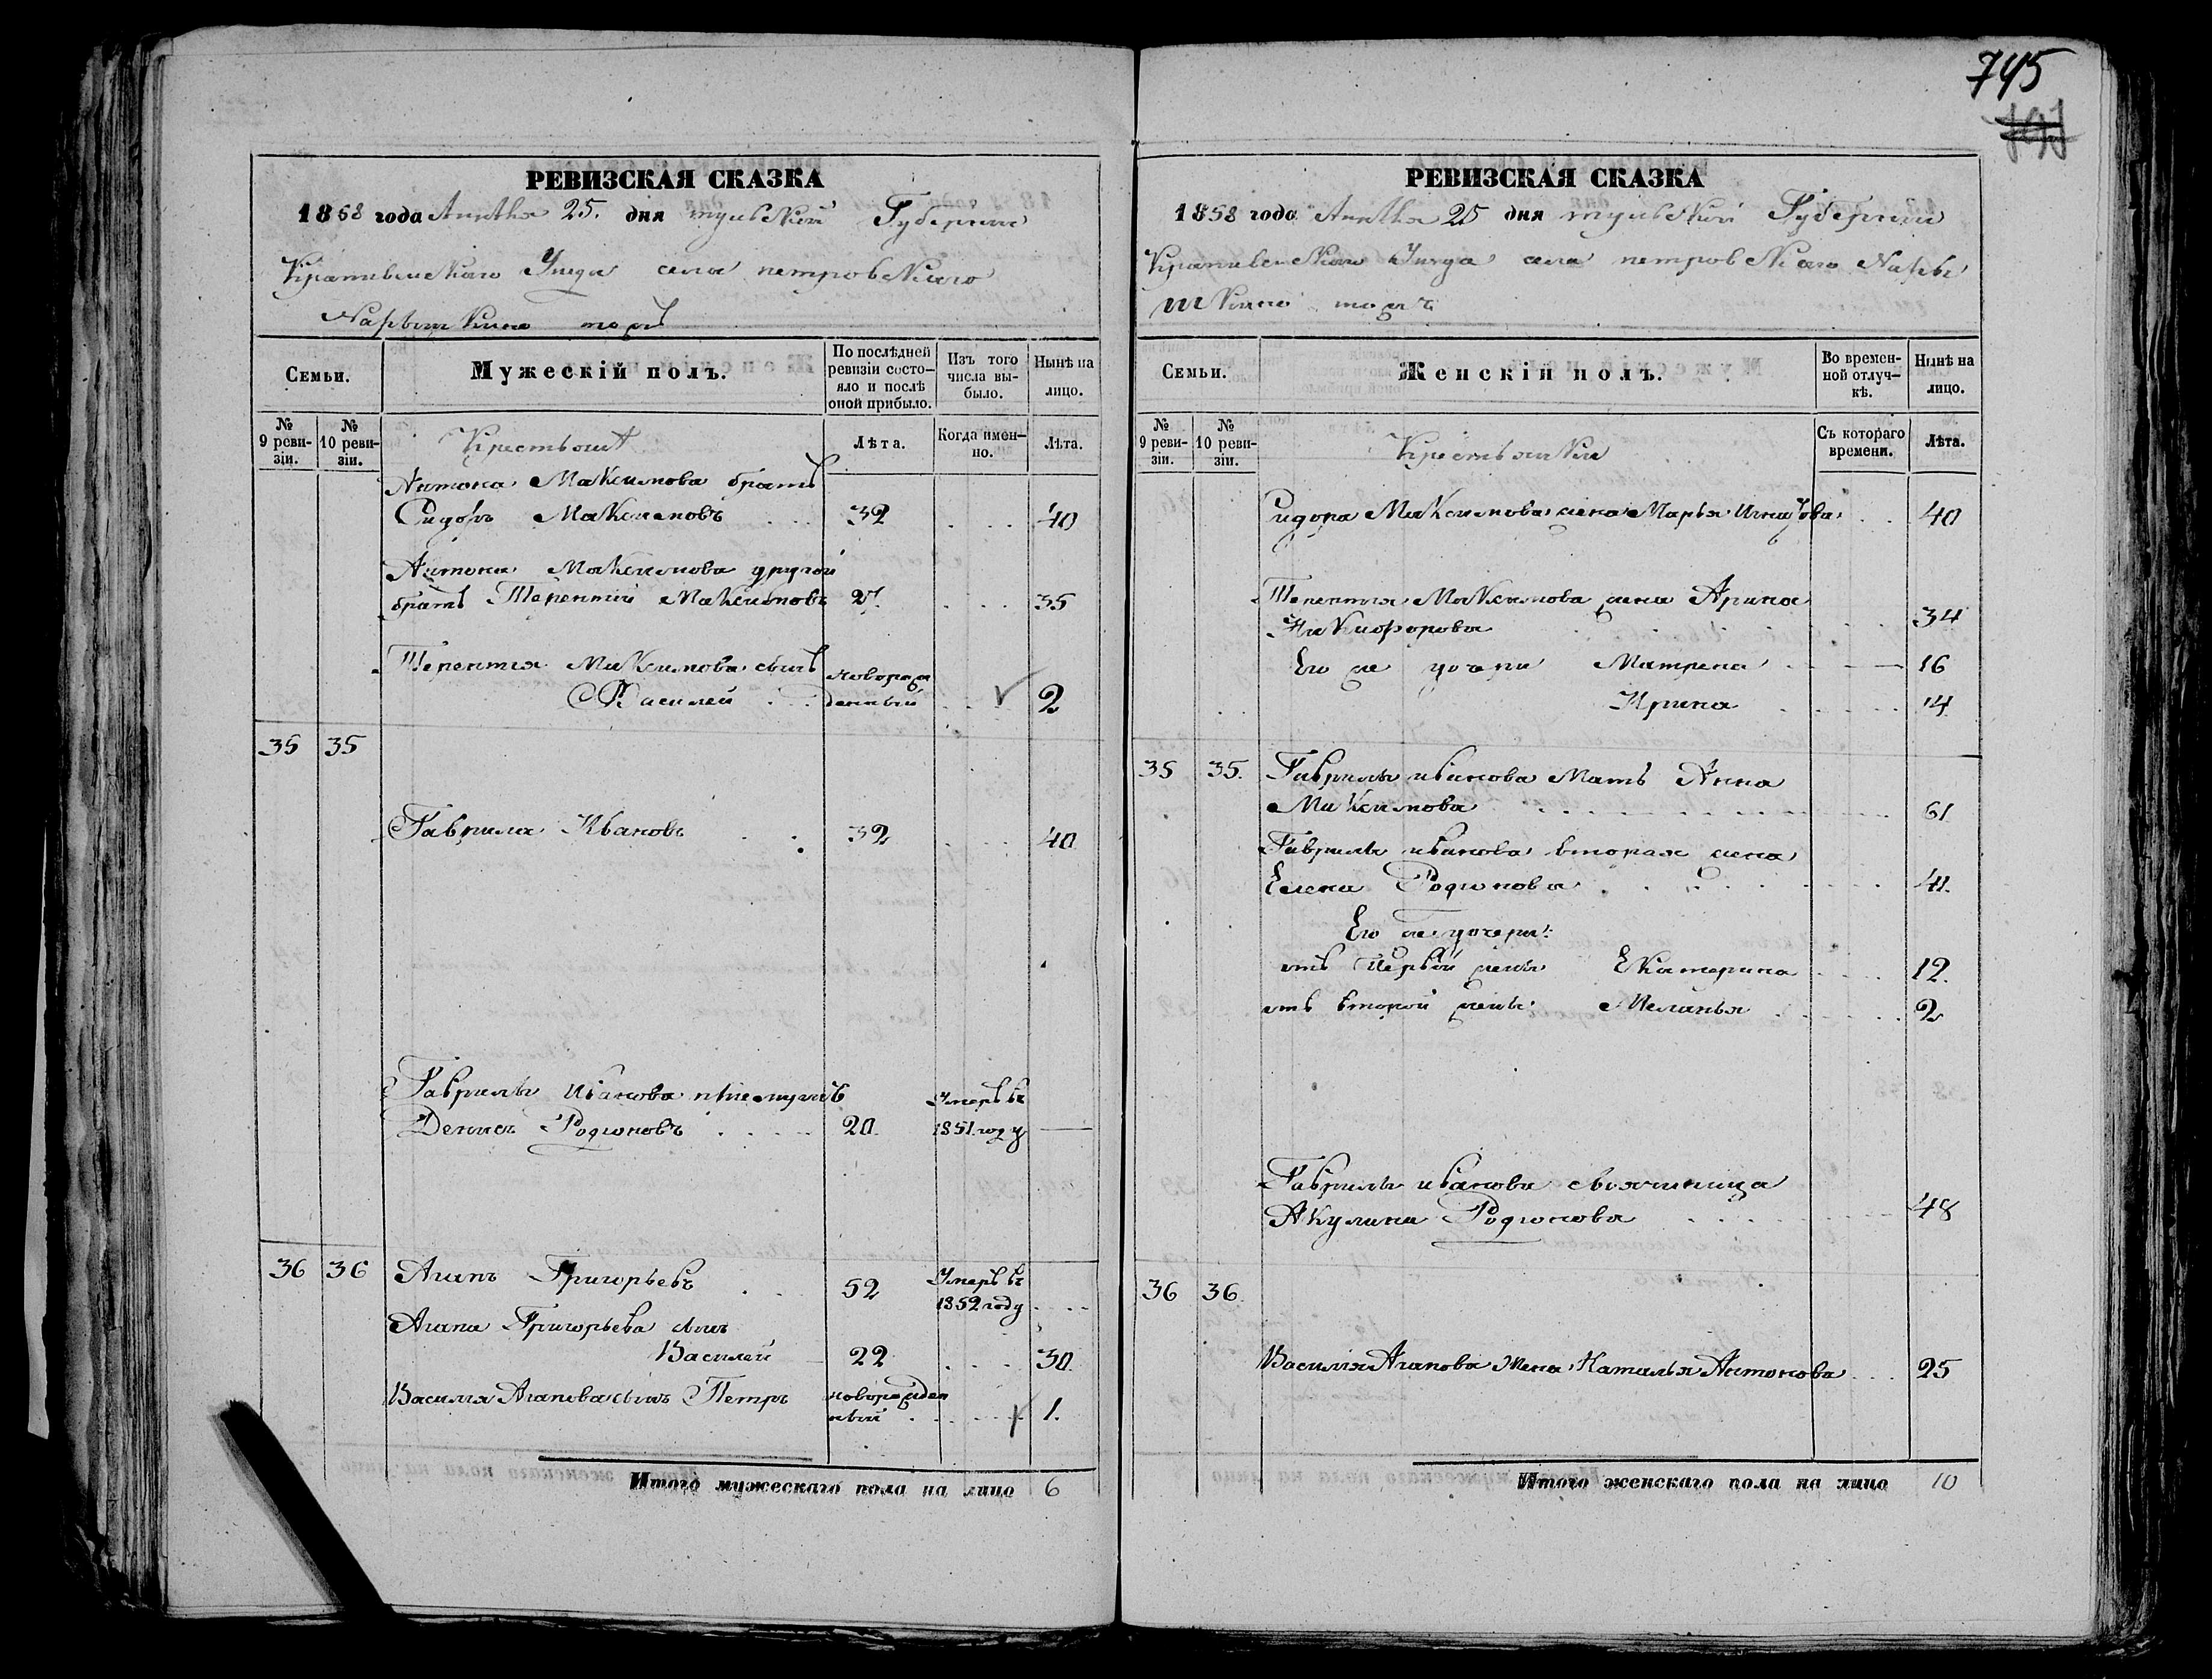 745
РЕВИЗСКАЯ СКАЗКА
1858 года Апреля 25. дня тульской Губернии
Крапивенскаго Уезда села петровскаго
Нарышкино тожъ
Семьи.
Мужескій полъ.
По послѣдней ревизіи состо-
яло и послѣ оной прибыло.
Изъ того числа вы-
было.
Нынѣ на лицо.
№ 9 реви-
зіи.
№ 10 реви-
зіи.
Крестьяне
Лѣта.
Когда имен-
но.
Лѣта.
Антона Максимова братъ
Сидоръ Максимовъ 32 40
Антона Максимова другой
братъ Терентій Максимовъ 27. 35
Терентья Максимова сынъ новорож
Василей денный 2
35 35
Гаврила Ивановъ 32 40
Гаврилы Иванова приемышъ Умеръ въ
Денисъ Родионовъ 20. 1851. году
36 36 Агапъ Григорьевъ 52 Умеръ въ
1852 году
Агапа Григорьева сынъ
Василей 22 30.
Василья Агапова сынъ Петръ новорожден
ный 1.
Итого мужескаго пола на лицо 6
РЕВИЗСКАЯ СКАЗКА
1858 года Апреля 25 дня тульской Губернии
Крапивенскаго Уезда села петровскаго Нары
шкино тожъ
Семьи.
Женскій полъ.
Во времен-
ной отлуч-
кѣ.
Нынѣ на лицо.
№ 9 реви-
зіи.
№ 10 реви-
зіи.
Крестьянки
Съ котораго времени.
Лѣта.
Сидора Максимова жена Марья 40
Терентья Максимова жена Арина
Никифорова 34
Его же дочери Матрена 16
Ирина 14.
35 35. Гаврилы иванова Мать Анна
Максимова 61
Гаврилы иванова вторая жена
Елена Родионова 41.
Его же дочери:
отъ Первой жены Екатерина 12.
отъ второй жены Меланья 2
Гаврилы иванова своячиница
Акулина Родионова 48
36 36.
Василья Агапова Жена Наталья Антонова 25
Итого женскаго пола на лицо 10